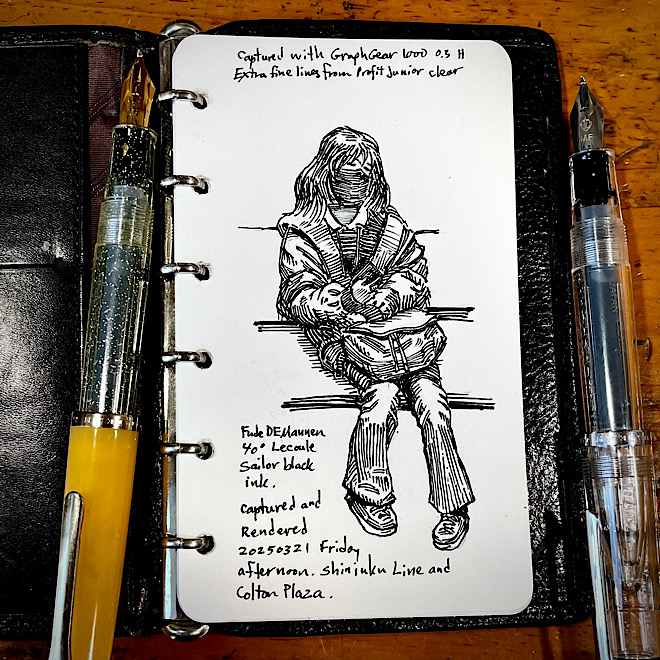 Captured with GraphGear 1000 0.5 H
Extra fine lines from Profit Junior clear
Fude DE Mannen
40° Lecoule
Sailor black
ink.
Captured and
Rendered
20250321 Friday
afternoon. Shinjuku Line and
Colton Plaza.
MF